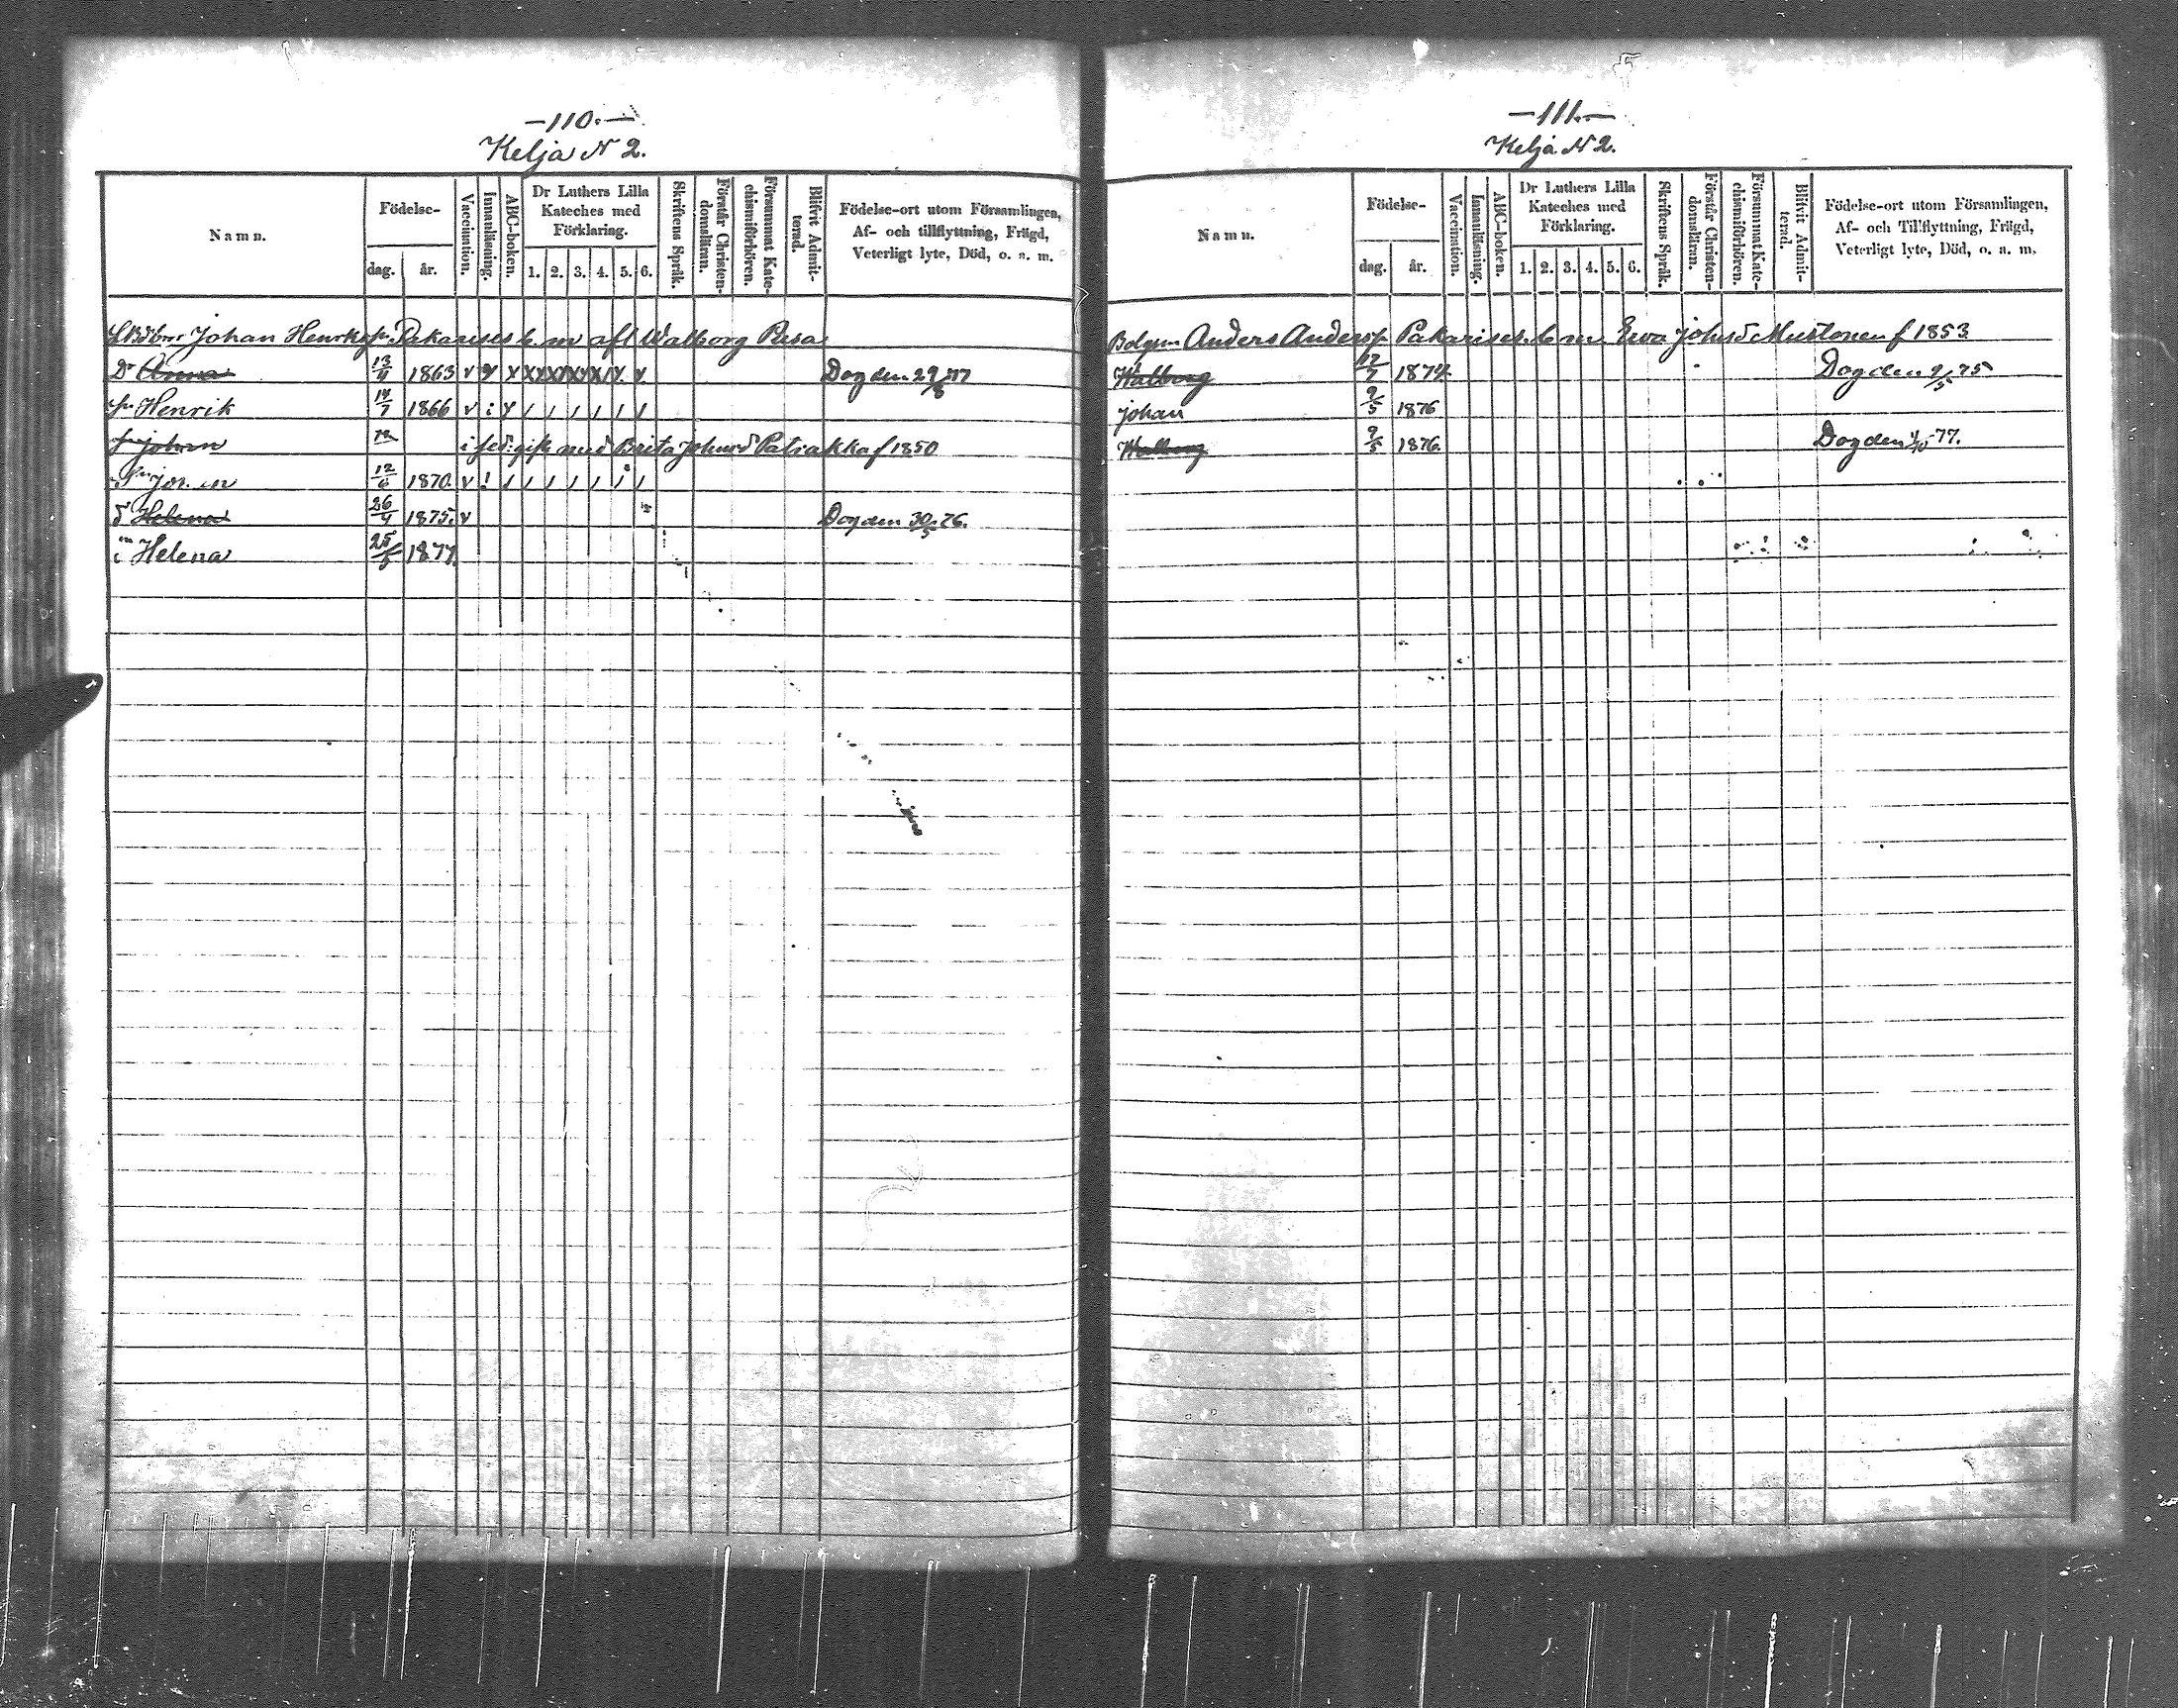 —110.—
Kelja N 2.
Namn.
Födelse-
dag.
år.
Vaccination.
Innanläsning.
ABC-boken.
Dr Luthers Lilla
Kateches med
Förklaring.
1. 2. 3. 4. 5. 6.
Skriftens Språk.
Förstår Christen-
domsläran.
Försummat Kate-
chismiförhören.
Blifvit Admit-
terad.
Födelse-ort utom Församlingen,
Af- och tillflyttning, Frägd,
Veterligt lyte, Död, o. s. m.
Johan Henrikss. Pakarises b. m afl Walborg Resa
Dr Anna 13/11 1863 v v x x x x x x v v Dog den 29/8 77
sn Henrik 14/7 1866 v i v / / / / / /
johan i fed. gift med Brita Johansd Patiakka f 1850
12/6 1870. v ! / / / / / / /
d Helena 26/4 1875. v Dog den 30/5 76.
Helena 25/8 1877.
—111.—
Kelja N 2.
Namn.
Födelse-
dag.
år.
Vaccination.
Innanläsning.
ABC-boken.
Dr Luthers Lilla
Kateches med
Förklaring.
1. 2. 3. 4. 5. 6.
Skriftens Språk.
Förstår Christen-
domsläran.
Försummat Kate-
chismiförhören.
Blifvit Admit-
terad.
Födelse-ort utom Församlingen,
Af- och Tillflyttning, Frägd,
Veterligt lyte, Död, o. a. m.
Anders Anderss. Pakarises. b m. Ewa johnsd Mustonen f 1853
Walborg 12/7 1874 Dog den 9/5 75
johan 9/5 1876
Walborg 9/5 1876. Dog den 4/10 -77.